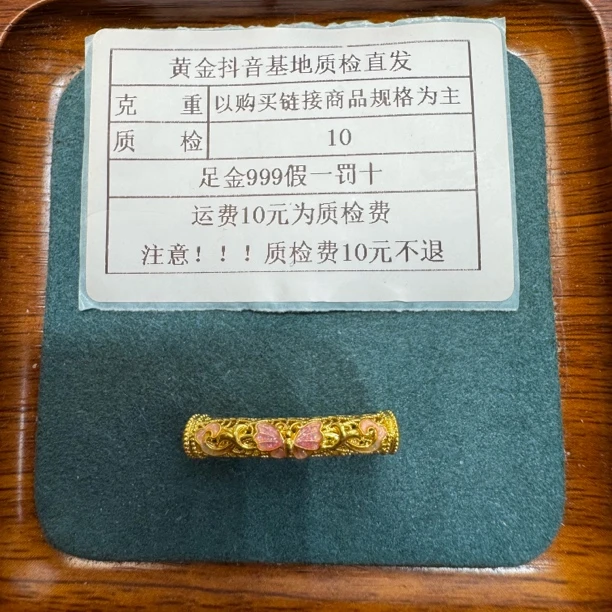 黄金抖音基地质检直发
克 重 以购买链接商品规格为主
质 检 10
足金999假一罚十
运费10元为质检费
注意！！！质检费10元不退